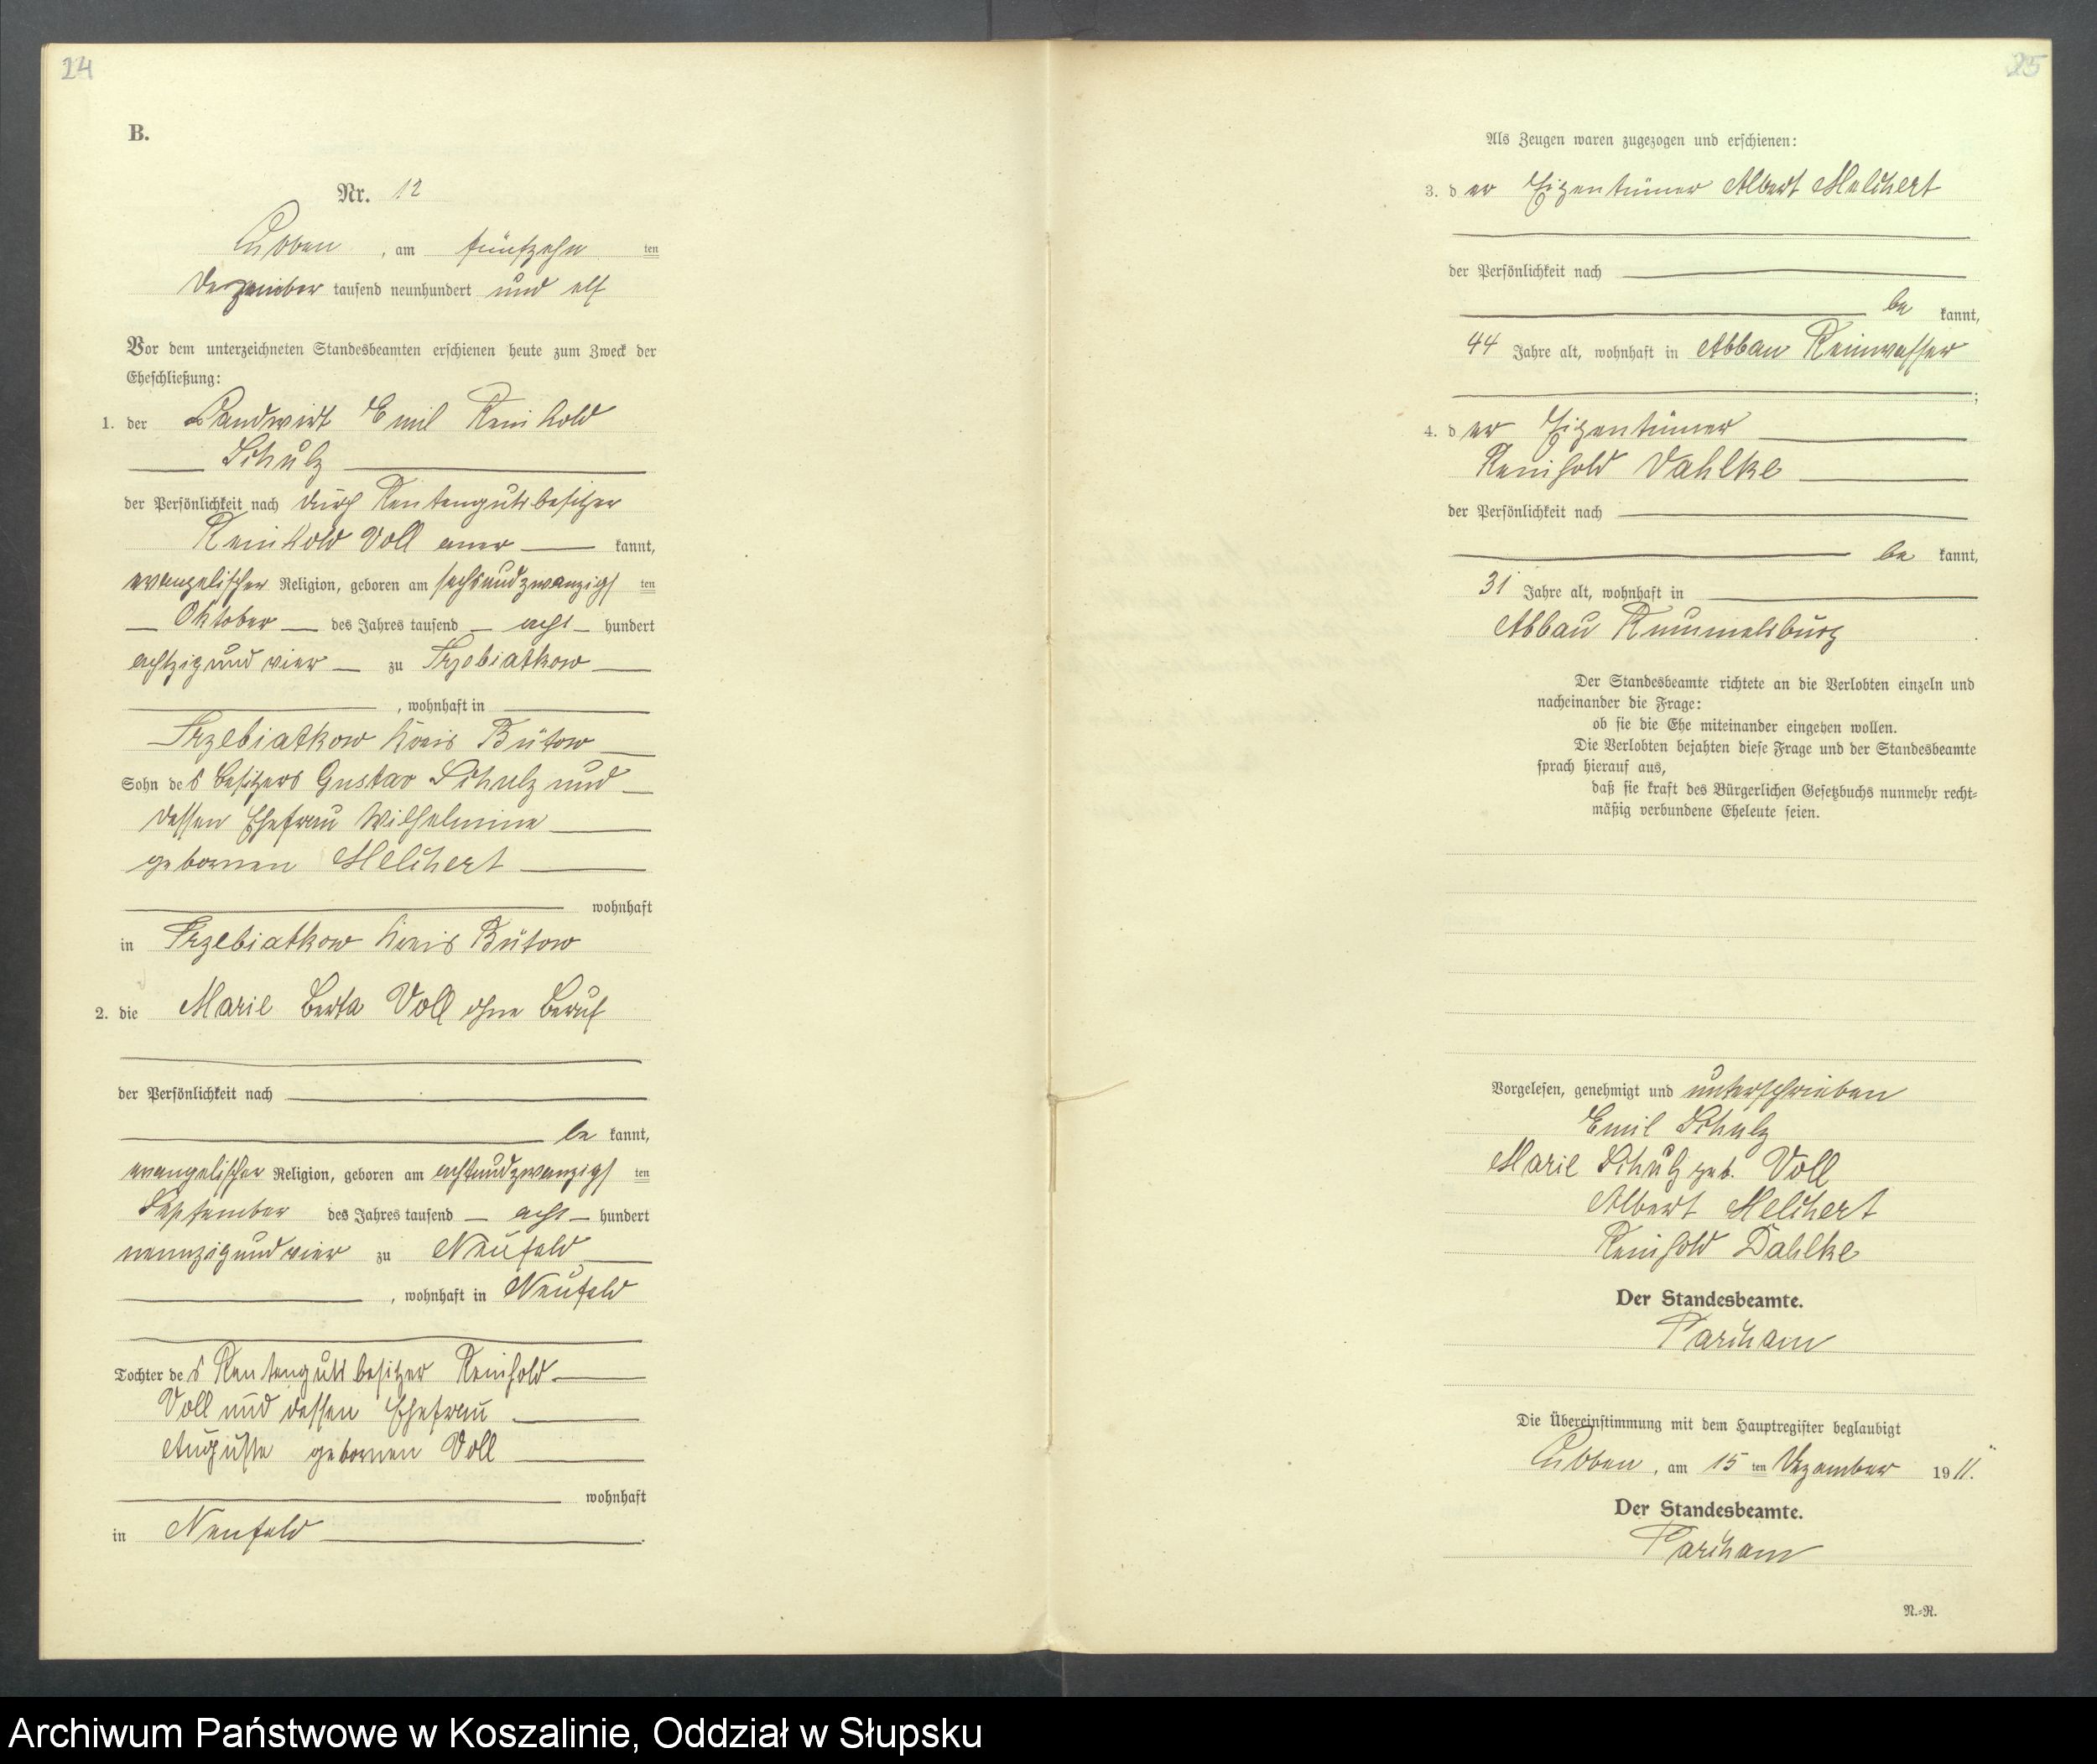 24
B.
Nr. 12
Lubben, am fünfzehn ten
Dezember tausend neunhundert und elf
Vor dem unterzeichneten Standesbeamten erschienen heute zum Zweck der
Eheschließung:
1. der Landwirt Emil Reinhold
Schulz
der Persönlichkeit nach durch Rentengutsbesitzer
Reinhold Voll aner kannt,
evangelischer Religion, geboren am sechsundzwanzigs ten
Oktober des Jahres tausend acht hundert
achtzig und vier zu Trzebiatkow
, wohnhaft in
Trzebiatkow Kreis Bütow
Sohn des Besitzers Gustav Schulz und
dessen Ehefrau Wilhelmine
gebornen Melchert
wohnhaft
in Trzebiatkow Kreis Bütow
2. die Marie Berta Voll ohne Beruf
der Persönlichkeit nach
be kannt,
evangelischer Religion, geboren am achtundzwanzigs ten
September des Jahres tausend acht hundert
neunzig und vier zu Neufeld
, wohnhaft in Neufeld
Tochter des Rentengutsbesitzer Reinhold
Voll und dessen Ehefrau
Auguste gebornen Voll
wohnhaft
in Neufeld.
25
Als Zeugen waren zugezogen und erschienen:
3. der Eigentümer Albert Melchert
der Persönlichkeit nach
be kannt,
44 Jahre alt, wohnhaft in Abbau Reinwasser
;
4. der Eigentümer
Reinhold Dahlke
der Persönlichkeit nach
be kannt,
31 Jahre alt, wohnhaft in
Abbau Rummelsburg.
Der Standesbeamte richtete an die Verlobten einzeln und
nacheinander die Frage:
ob sie die Ehe miteinander eingehen wollen.
Die Verlobten bejahten diese Frage und der Standesbeamte
sprach hierauf aus,
daß sie kraft des Bürgerlichen Gesetzbuchs nunmehr recht-
mäßig verbundene Eheleute seien.
Vorgelesen, genehmigt und unterschrieben
Emil Schulz
Marie Schulz geb. Voll
Albert Melchert
Reinhold Dahlke
Der Standesbeamte.
Parcham
Die Übereinstimmung mit dem Hauptregister beglaubigt
Lubben, am 15 ten Dezember 1911.
Der Standesbeamte.
Parcham
N.-R.
Archiwum Państwowe w Koszalinie, Oddział w Słupsku